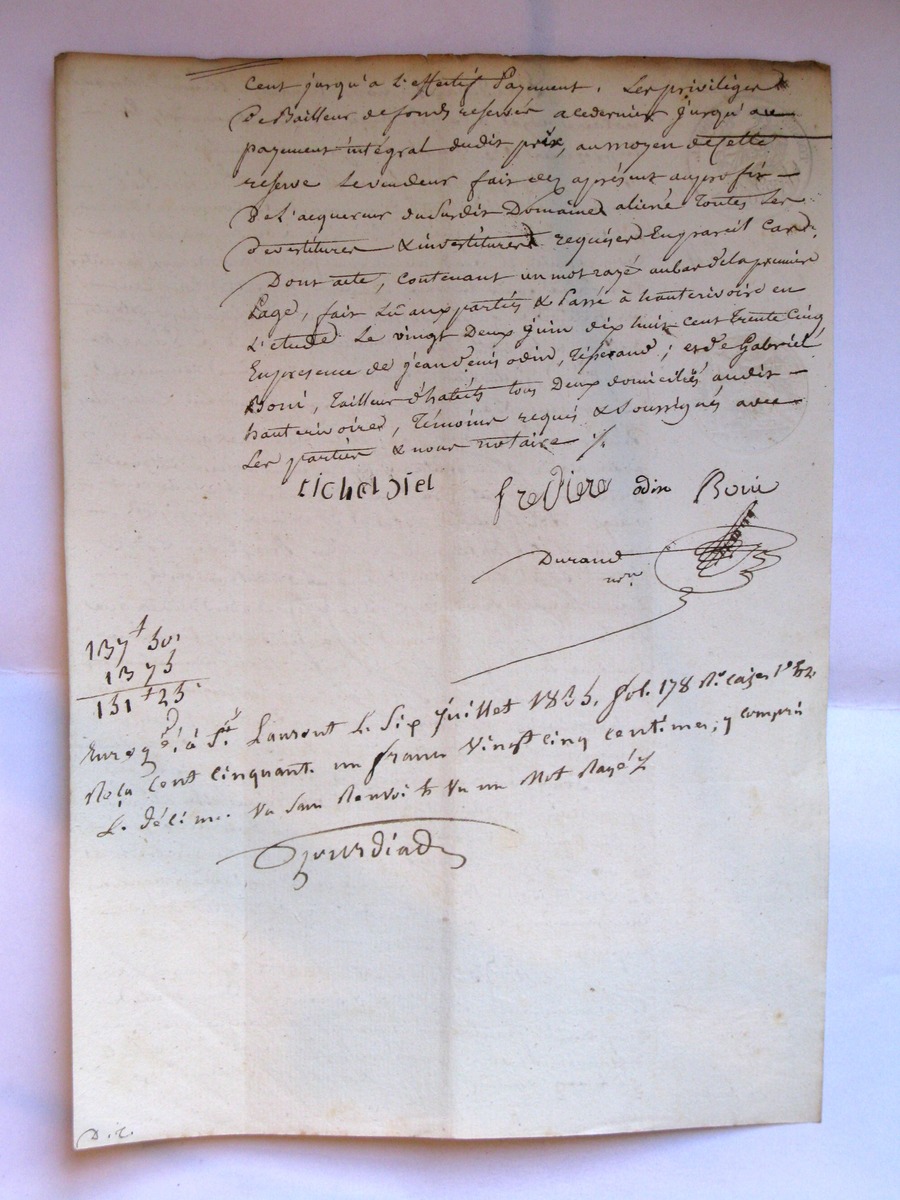 cent jusqu'a l'effectif Payement. Les priviléges
De Bailleur de fonds reservés a ce dernier jusqu'au
payement intégral dudit prix, au moyen de cette
réserve le vendeur fait dez aprésent au profit
De l'acquereur du Susdit Domaine aliené toutes les
Devestitures & investitures requises En pareil Cas.
Dont acte, contenant un mot rayé au bas de la premiere
Page, fait Lû aux parties & Passé à hauterivoire en
L'etude Le vingt Deux juin dix huit cent Trente Cinq
En presence de jean denis odin, Tisserand; et de Gabriel
Boni, Tailleur d'habits tous Deux domiciliés audit
hauterivoire, Témoins requis & Soussignés avec
Les parties & nous notaire ./.
frediere odin Boni
Durand
nore
137 f 50.
13 75
151 f 25.
Enregé à St Laurent le Six Juillet 1835, fol. 178 Ro cases 1 &
Reçu Cent cinquante un francs Vingt cinq centimes, y compris
le décime. Vu Sans Renvoi & Vu un Mot Rayé
D. r.